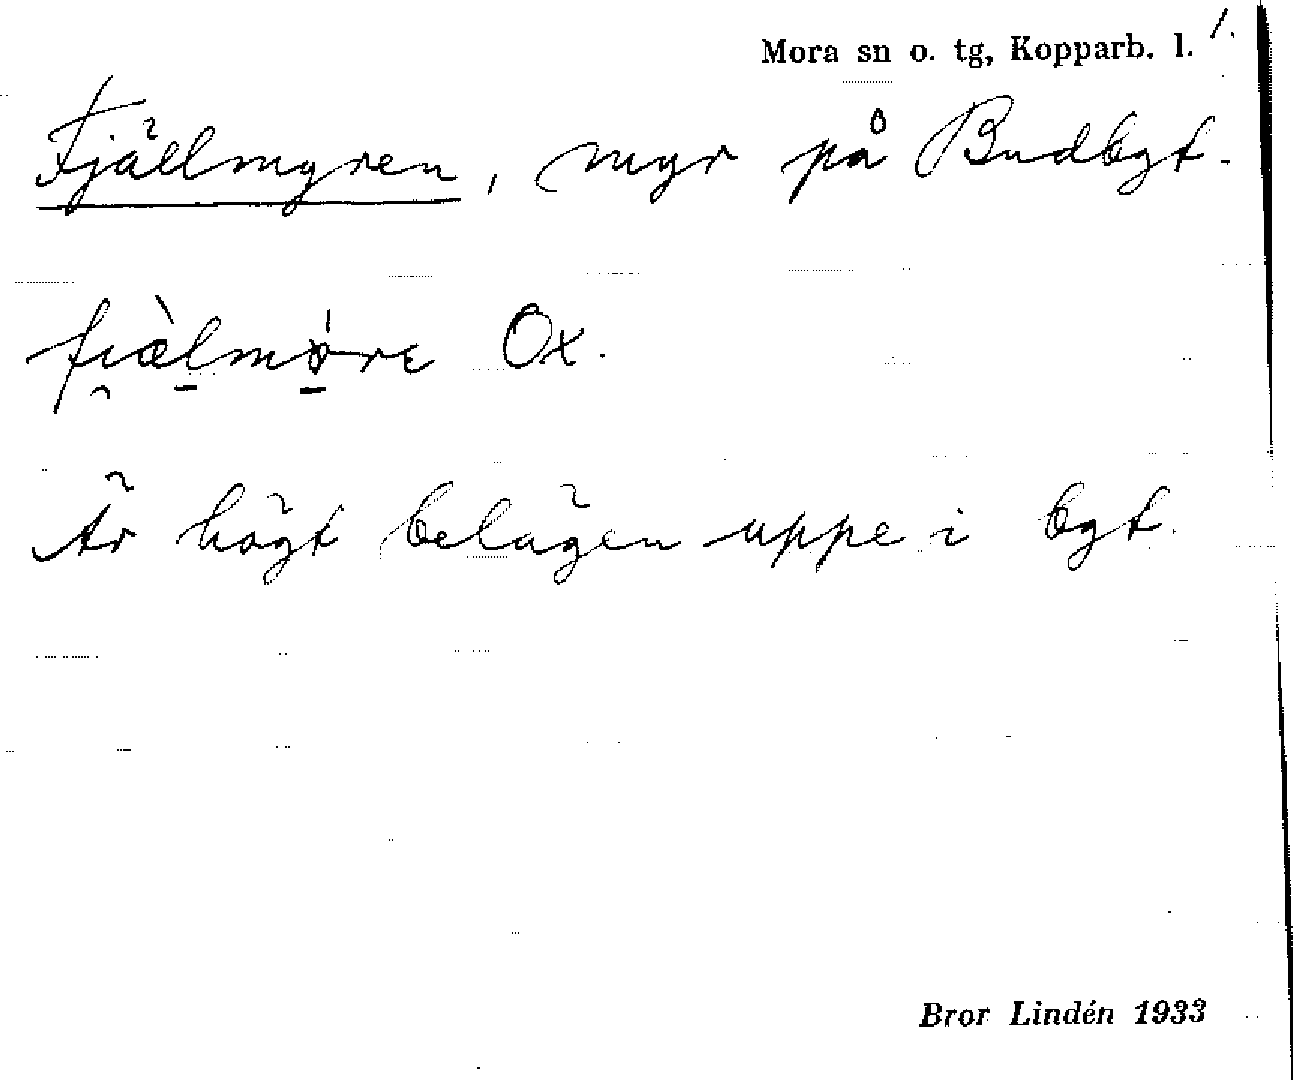 Mora sn o. tg, Kopparb. l. 1.
Fjällmyren, myr på Budbgt.
fi̯æ̀lmø̀re Ox.
Är högt belägen uppe i bgt.
Bror Lindén 1933